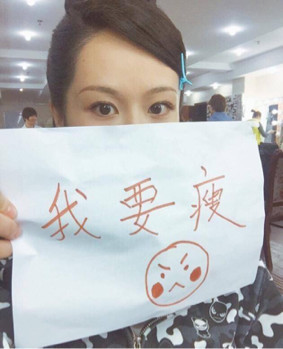 我要瘦